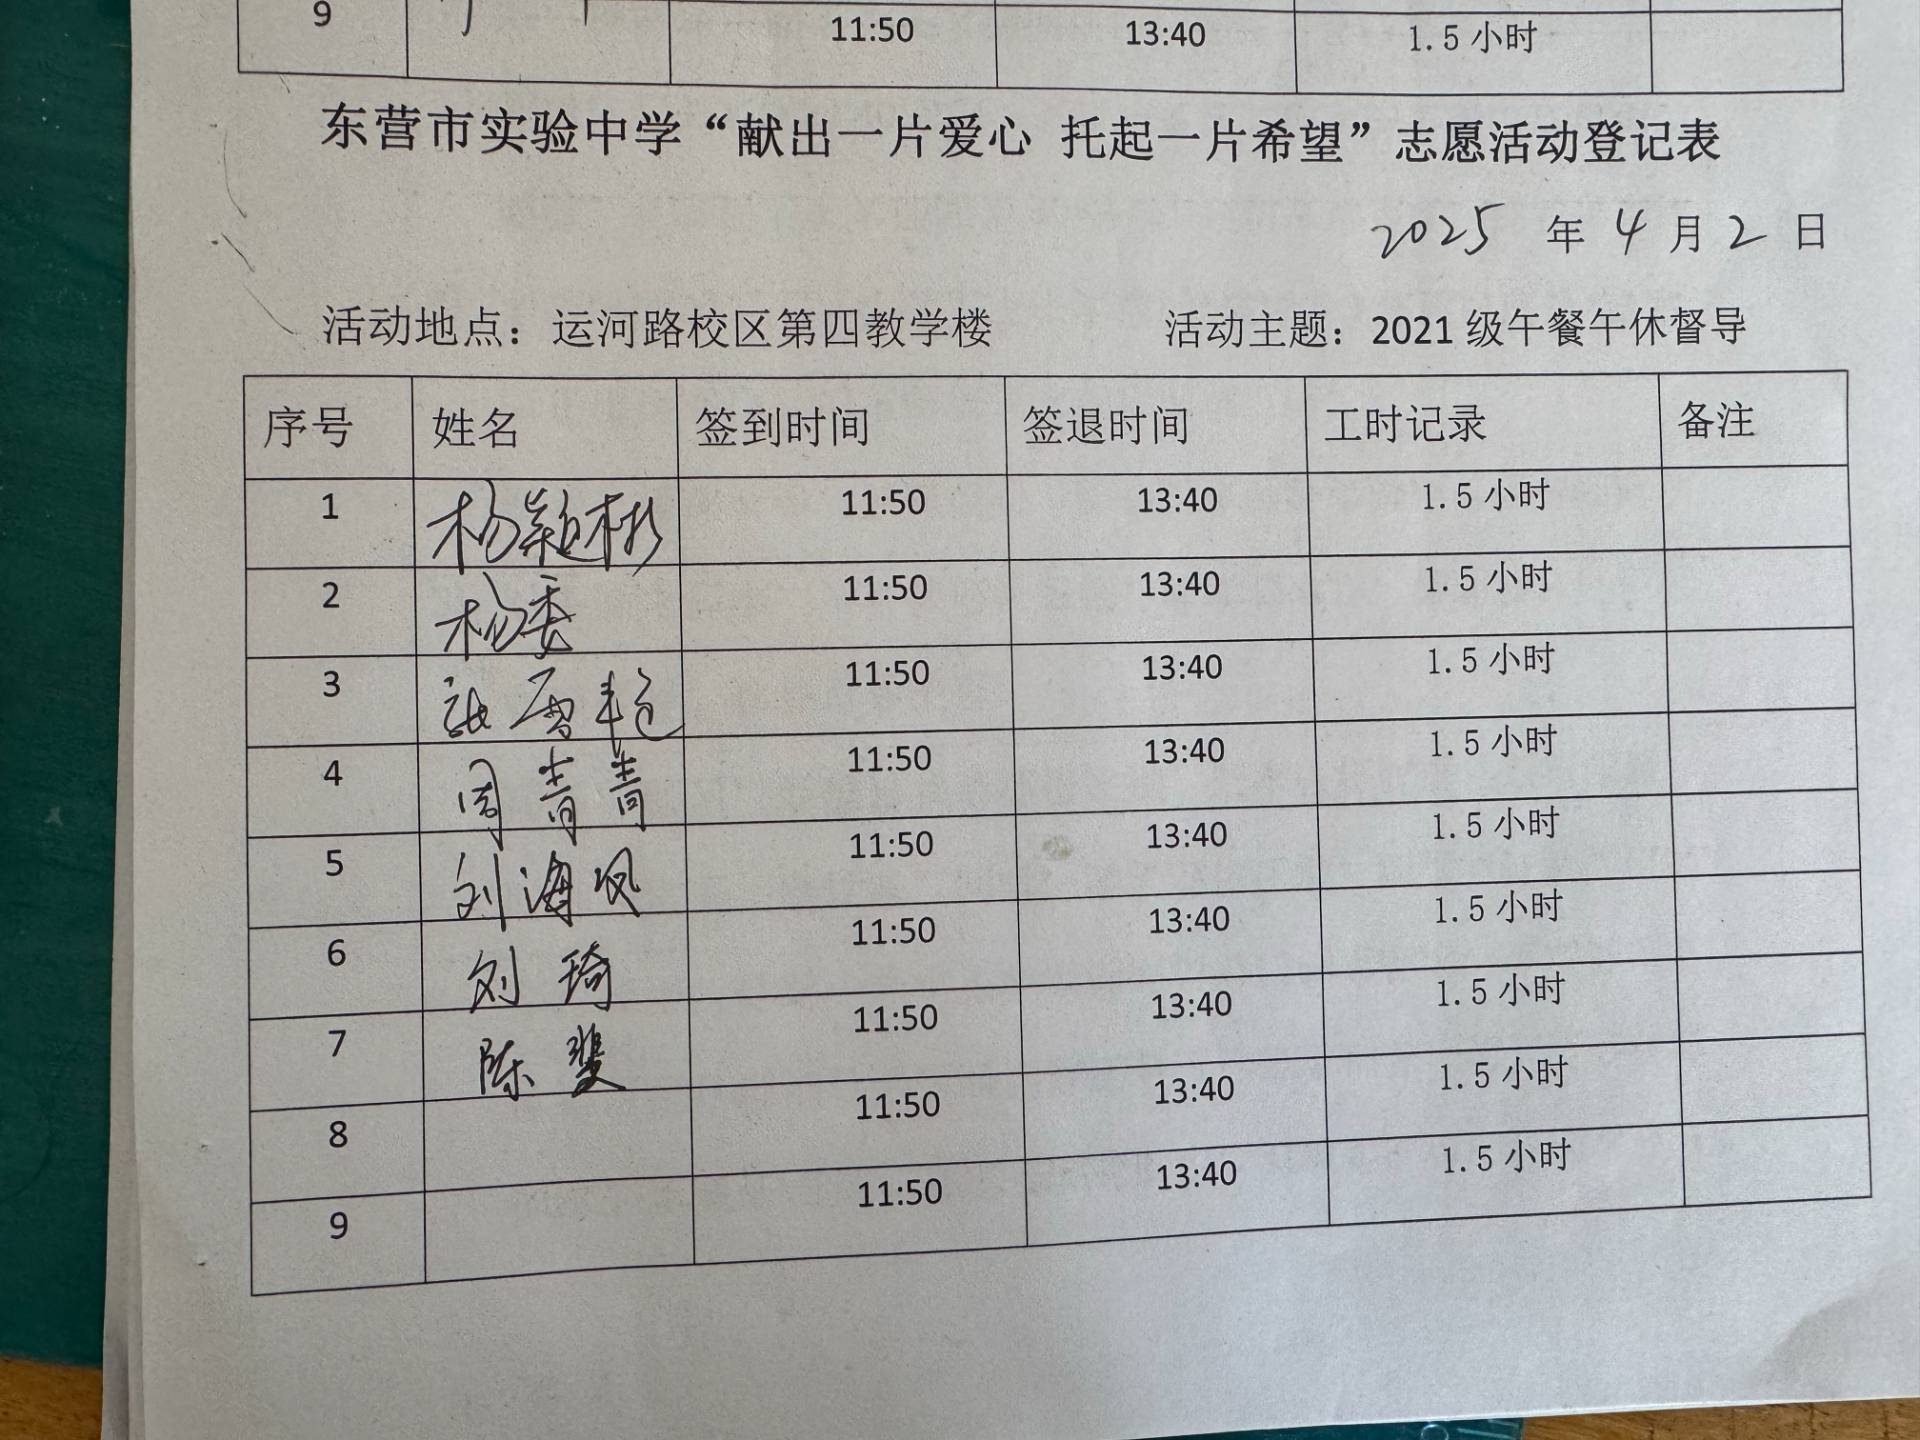 9 11:50 13:40 1.5 小时
东营市实验中学“献出一片爱心 托起一片希望”志愿活动登记表
2025 年 4 月 2 日
活动地点：运河路校区第四教学楼 活动主题：2021 级午餐午休督导
序号 姓名 签到时间 签退时间 工时记录 备注
1 杨颖彬 11:50 13:40 1.5 小时
2 杨委 11:50 13:40 1.5 小时
3 张雪艳 11:50 13:40 1.5 小时
4 周青青 11:50 13:40 1.5 小时
5 刘海凤 11:50 13:40 1.5 小时
6 刘琦 11:50 13:40 1.5 小时
7 陈斐 11:50 13:40 1.5 小时
8 11:50 13:40 1.5 小时
9 11:50 13:40 1.5 小时